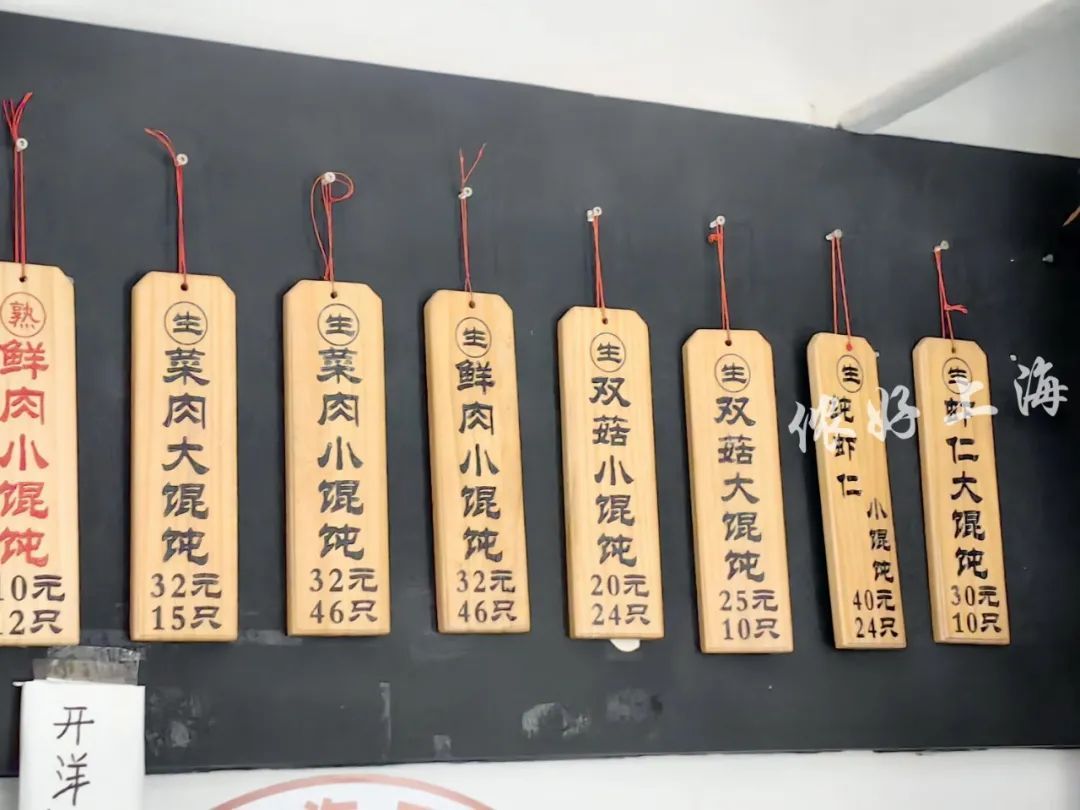 熟
鲜肉小馄饨
10元
12只
生
菜肉大馄饨
32元
15只
生
菜肉小馄饨
32元
46只
生
鲜肉小馄饨
32元
46只
生
双菇小馄饨
20元
24只
生
双菇大馄饨
25元
10只
生
纯虾仁
小馄饨
40元
24只
生
虾仁大馄饨
30元
10只
侬好上海
开洋